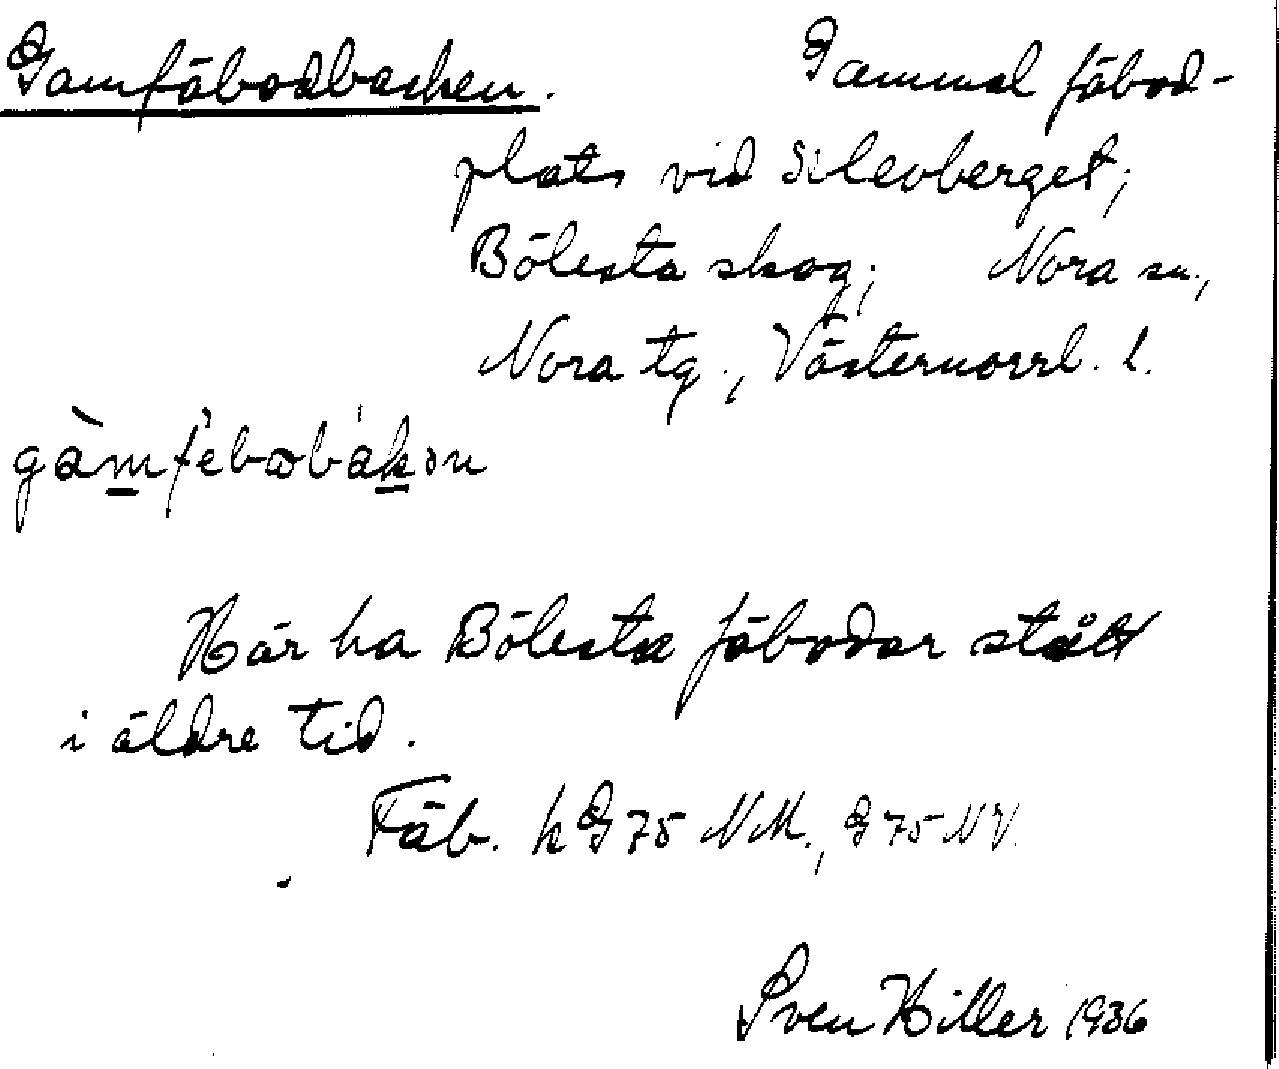 Gamfäbodbacken. Gammal fäbod-
plats vid Silevberget;
Bölesta skog; Nora sn.,
Nora tg., Västernorrl. l.
gàmfèbωbákən
Här ha Bölesta fäbodar stått
i äldre tid.
Fäb. k G 75 NM., G 75 NV.
Sven Hiller 1936